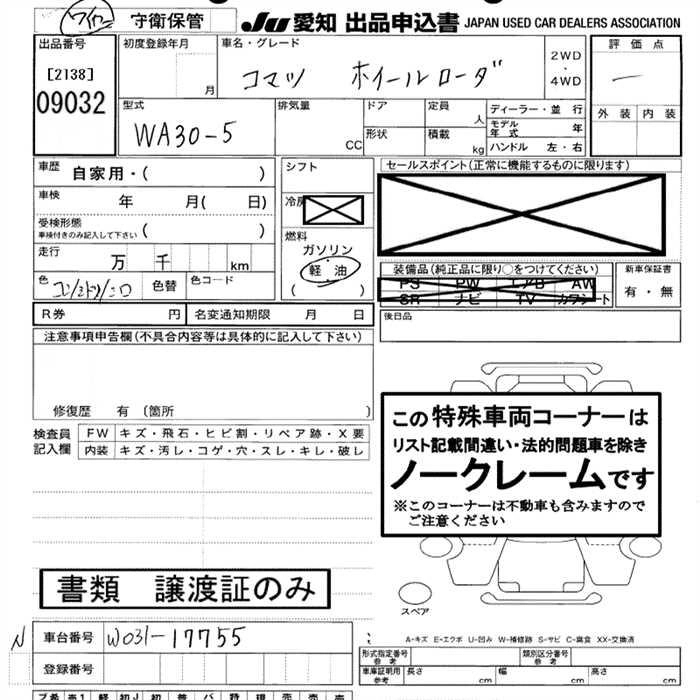 ワイヤー 守衛保管 JU 愛知 出品申込書 JAPAN USED CAR DEALERS ASSOCIATION
出品番号 初度登録年月 車名・グレード 評価点
[2138] 月 コマツ ホイールローダ 2WD・4WD —
09032
型式 排気量 ドア 定員 ディーラー・並行 外装 内装
WA30-5 CC 形状 人 モデル年式 年
積載 kg ハンドル 左・右
車歴 自家用・( ) シフト セールスポイント(正常に機能するものに限ります)
車検 年 月( 日) 冷房
受検形態 ( )
車検付きのみ記入して下さい
燃料
走行 万 千 km ガソリン
軽油
( )
色 色替 色コード
装備品(純正品に限り○をつけてください) 新車保証書
PS PW エアB AW 有・無
SR ナビ TV カワシート
R券 円 名変通知期限 月 日 後日品
注意事項申告欄(不具合内容等は具体的に記入して下さい)
修復歴 有 (箇所 )
この特殊車両コーナーは
リスト記載間違い・法的問題車を除き
ノークレームです
※このコーナーは不動車も含みますので
ご注意ください
検査員記入欄 FW キズ・飛石・ヒビ割・リペア跡・X要
内装 キズ・汚レ・コゲ・穴・スレ・キレ・破レ
書類 譲渡証のみ
スペア
A-キズ E-エクボ U-凹み W-補修跡 S-サビ C-腐食 XX-交換済
N 車台番号 W031-17755
登録番号
形式指定番号 参考 類別区分番号 参考
車庫証明用 参考 長さ cm 幅 cm 高さ cm